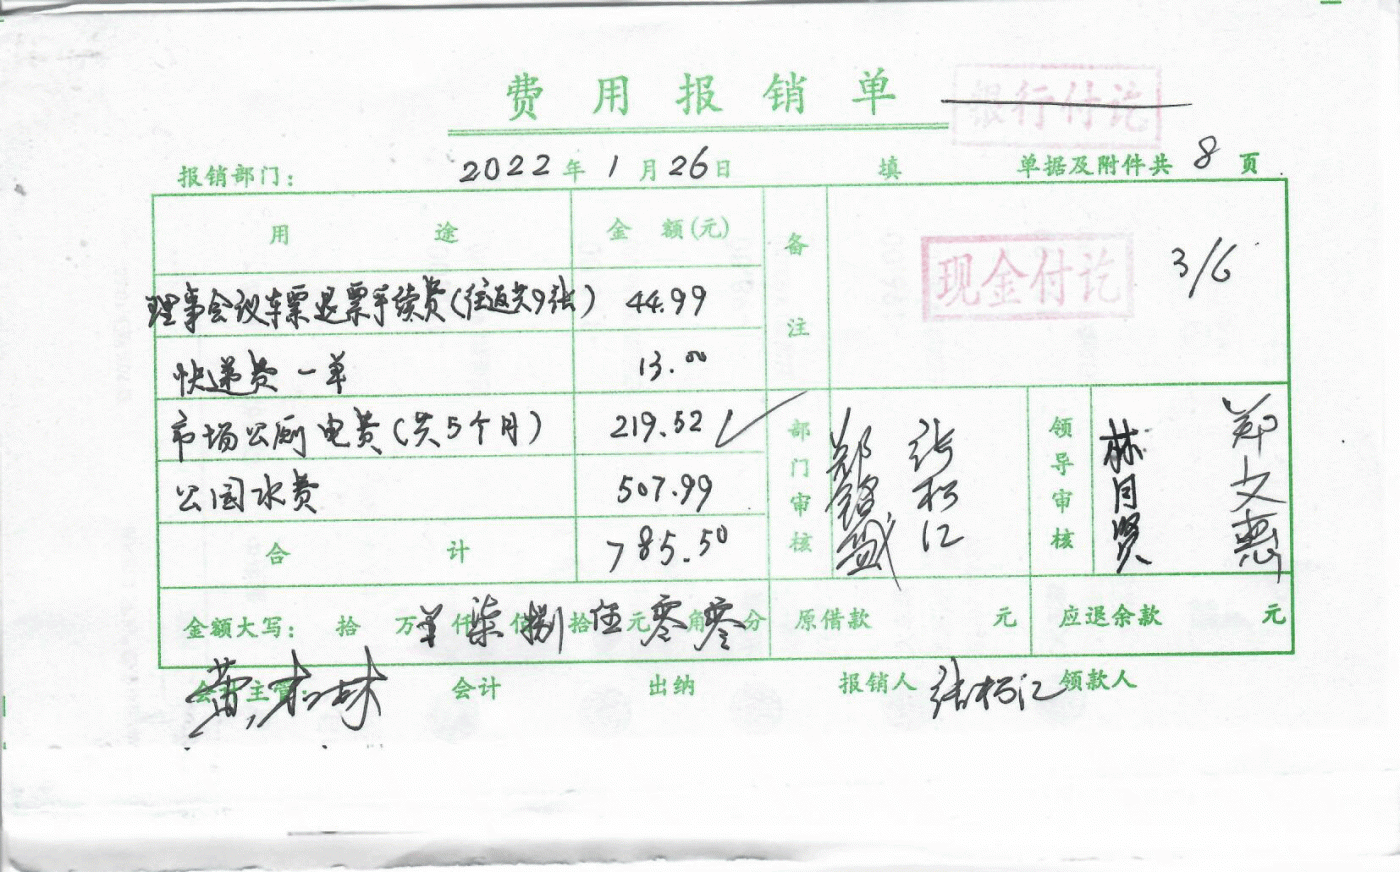 费用报销单
银行付讫
报销部门： 2022年1月26日 填 单据及附件共8页
用途 金额(元) 备注
现金付讫 3/6
理事会议车票退票手续费(往返共9张) 44.99
快递费一单 13.00
市场公厕电费(共5个月) 219.52
公园水费 507.99
合计 785.50
部门审核 郑 张松江
领导审核 林月贤 郑文惠
金额大写： 拾 万 仟柒佰捌拾伍元零角零分 原借款 元 应退余款 元
会计主管： 会计 出纳 报销人 张松江 领款人